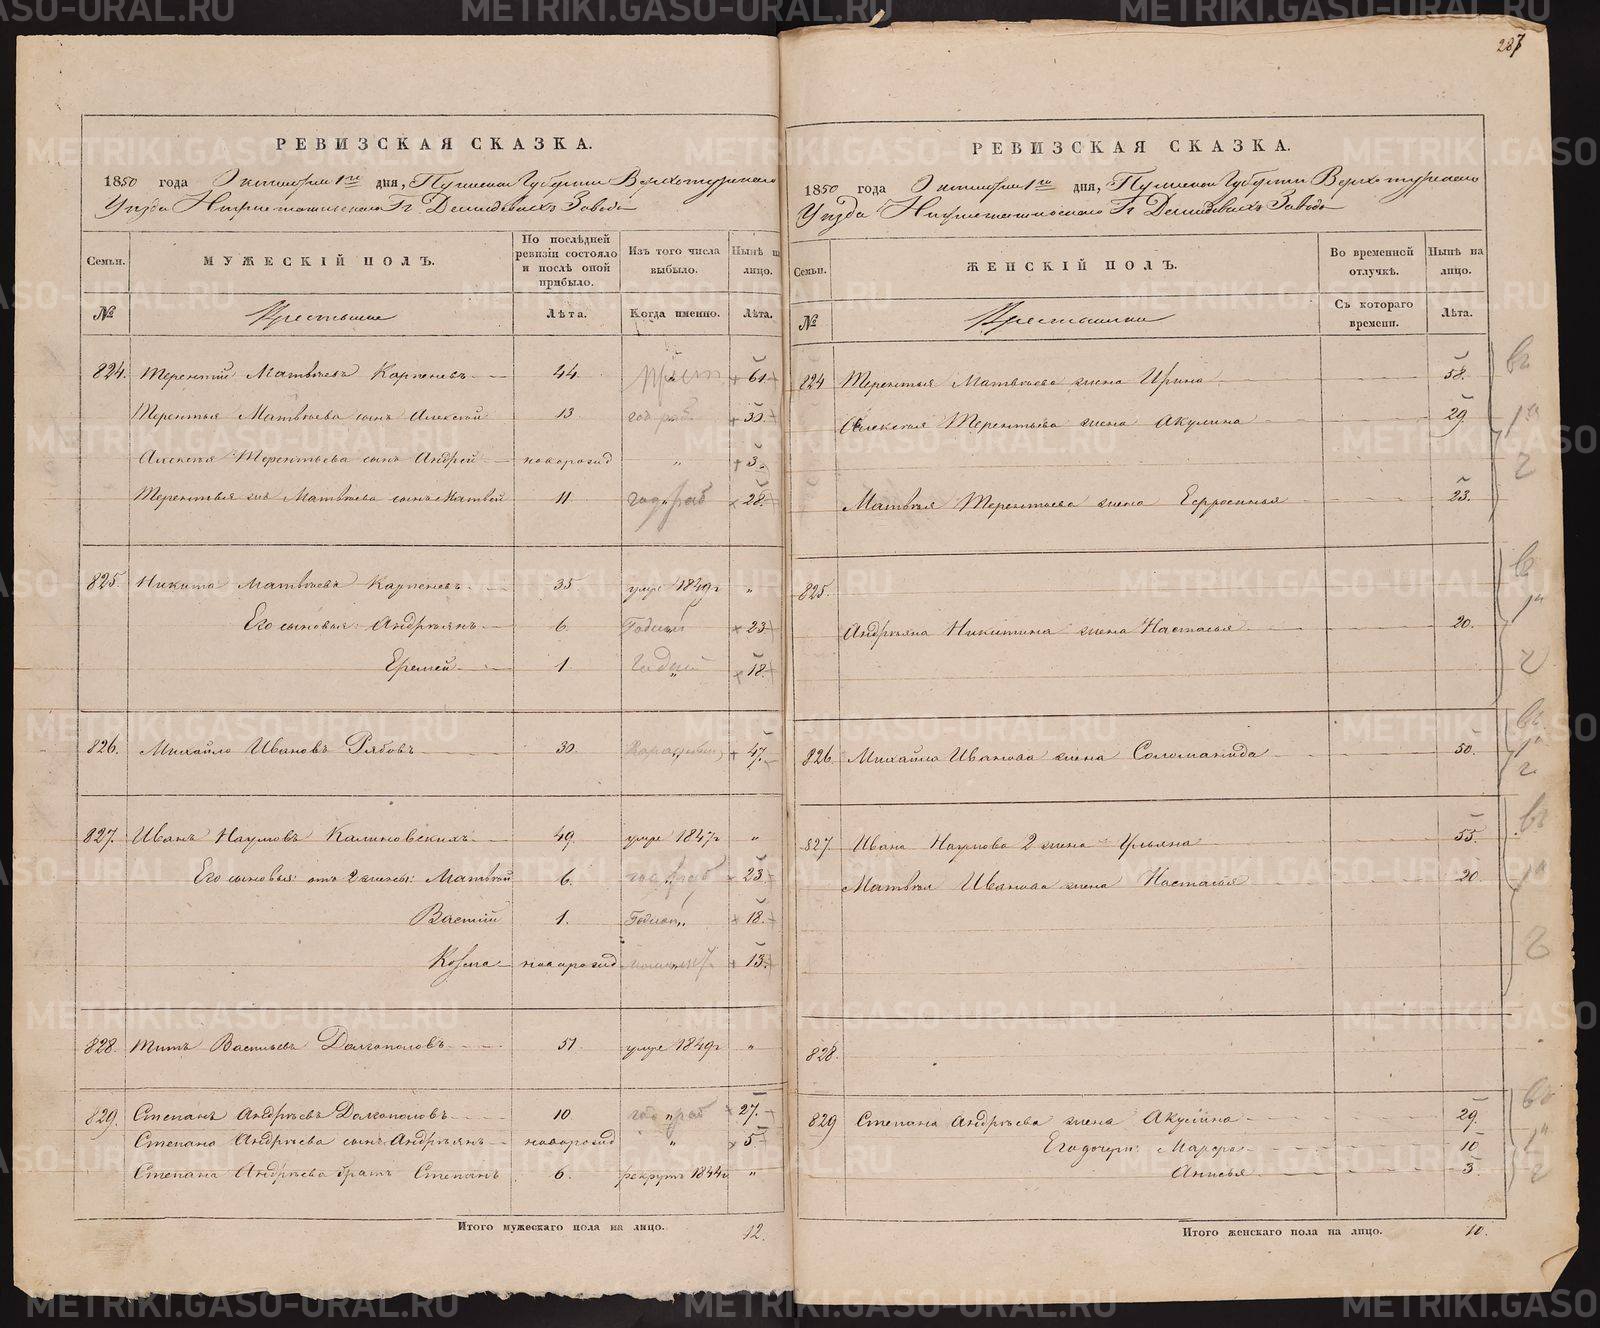 287
РЕВИЗСКАЯ СКАЗКА.
1850 года Октября 1го дня, Пермской Губернии Верхотурскаго
Уѣзда Нижнетагильскаго Гг Демидовыхъ Завода
Семьи. МУЖЕСКІЙ ПОЛЪ. По послѣдней ревизіи состояло и послѣ оной прибыло. Изъ того числа выбыло. Нынѣ на лицо.
№ Крестьяне Лѣта. Когда именно. Лѣта.
824. Терентій Матвѣевъ Карпеневъ 44. 61.
Терентья Матвѣева сынъ Алексѣй 13 30
Алексѣя Терентьева сынъ Андрей новорожд „ 3.
Терентья Матвѣева сынъ Матвѣй 11 28.
825. Никита Матвѣевъ Карпеневъ 35 умре 1849г „
Его сыновья: Андреянъ 6. Годный 23
Еремей 1. годный 18.
826. Михайло Ивановъ Рябовъ 30. 47.
827. Иванъ Наумовъ Калиновскихъ 49. умре 1847г „
Его сыновья: отъ 2 жены: Матвѣй 6. 23.
Васлій 1. Годной 18.
Козма новорожд 13.
828. Титъ Васильевъ Долгополовъ 51. умре 1849г „
829. Степанъ Андрѣевъ Долгополовъ 10 27.
Степана Андрѣева сынъ Андреянъ новорожд „ 5
Степана Андрѣева братъ Степанъ 6. рекрутъ 1844г „
Итого мужескаго пола на лицо. 12.
РЕВИЗСКАЯ СКАЗКА.
1850 года Октября 1го дня, Пермской Губерніи Верхотурскаго
Уѣзда Нижнетагильскаго Гг Демидовыхъ Завода
Семьи. ЖЕНСКІЙ ПОЛЪ. Во временной отлучкѣ. Нынѣ на лицо.
№ Крестьянки Съ котораго времени. Лѣта.
824 Терентья Матвѣева жена Ирина 58.
Алексѣя Терентьева жена Акулина 29.
Матвѣя Терентьева жена Ефросинья 23.
825.
Андреяна Никитина жена Настасья 20.
826. Михайла Иванова жена Соломанида 50.
827. Ивана Наумова 2 жена Ульяна 55.
Матвѣя Иванова жена Настасья 20
828.
829 Степана Андрѣева жена Акулина 29.
Его дочери: Марфа 10
Анисья 3.
Итого женскаго пола на лицо. 10.
METRIKI.GASO-URAL.RU